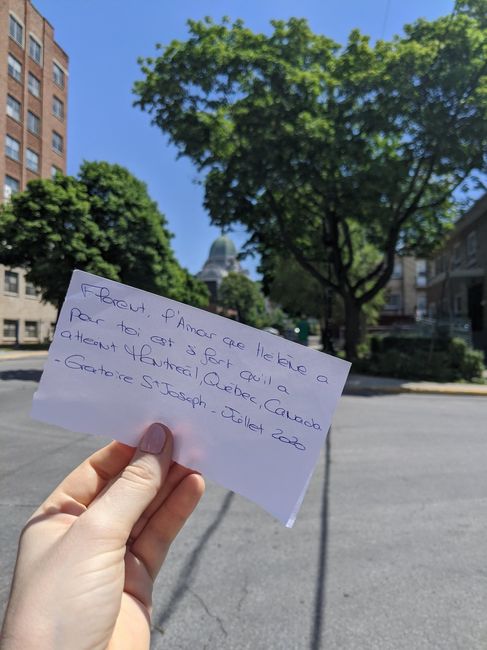 Florent, l'Amour que Hélène a
pour toi est si fort qu'il a
atteint Montréal, Québec, Canada
- Oratoire St Joseph - Juillet 2020